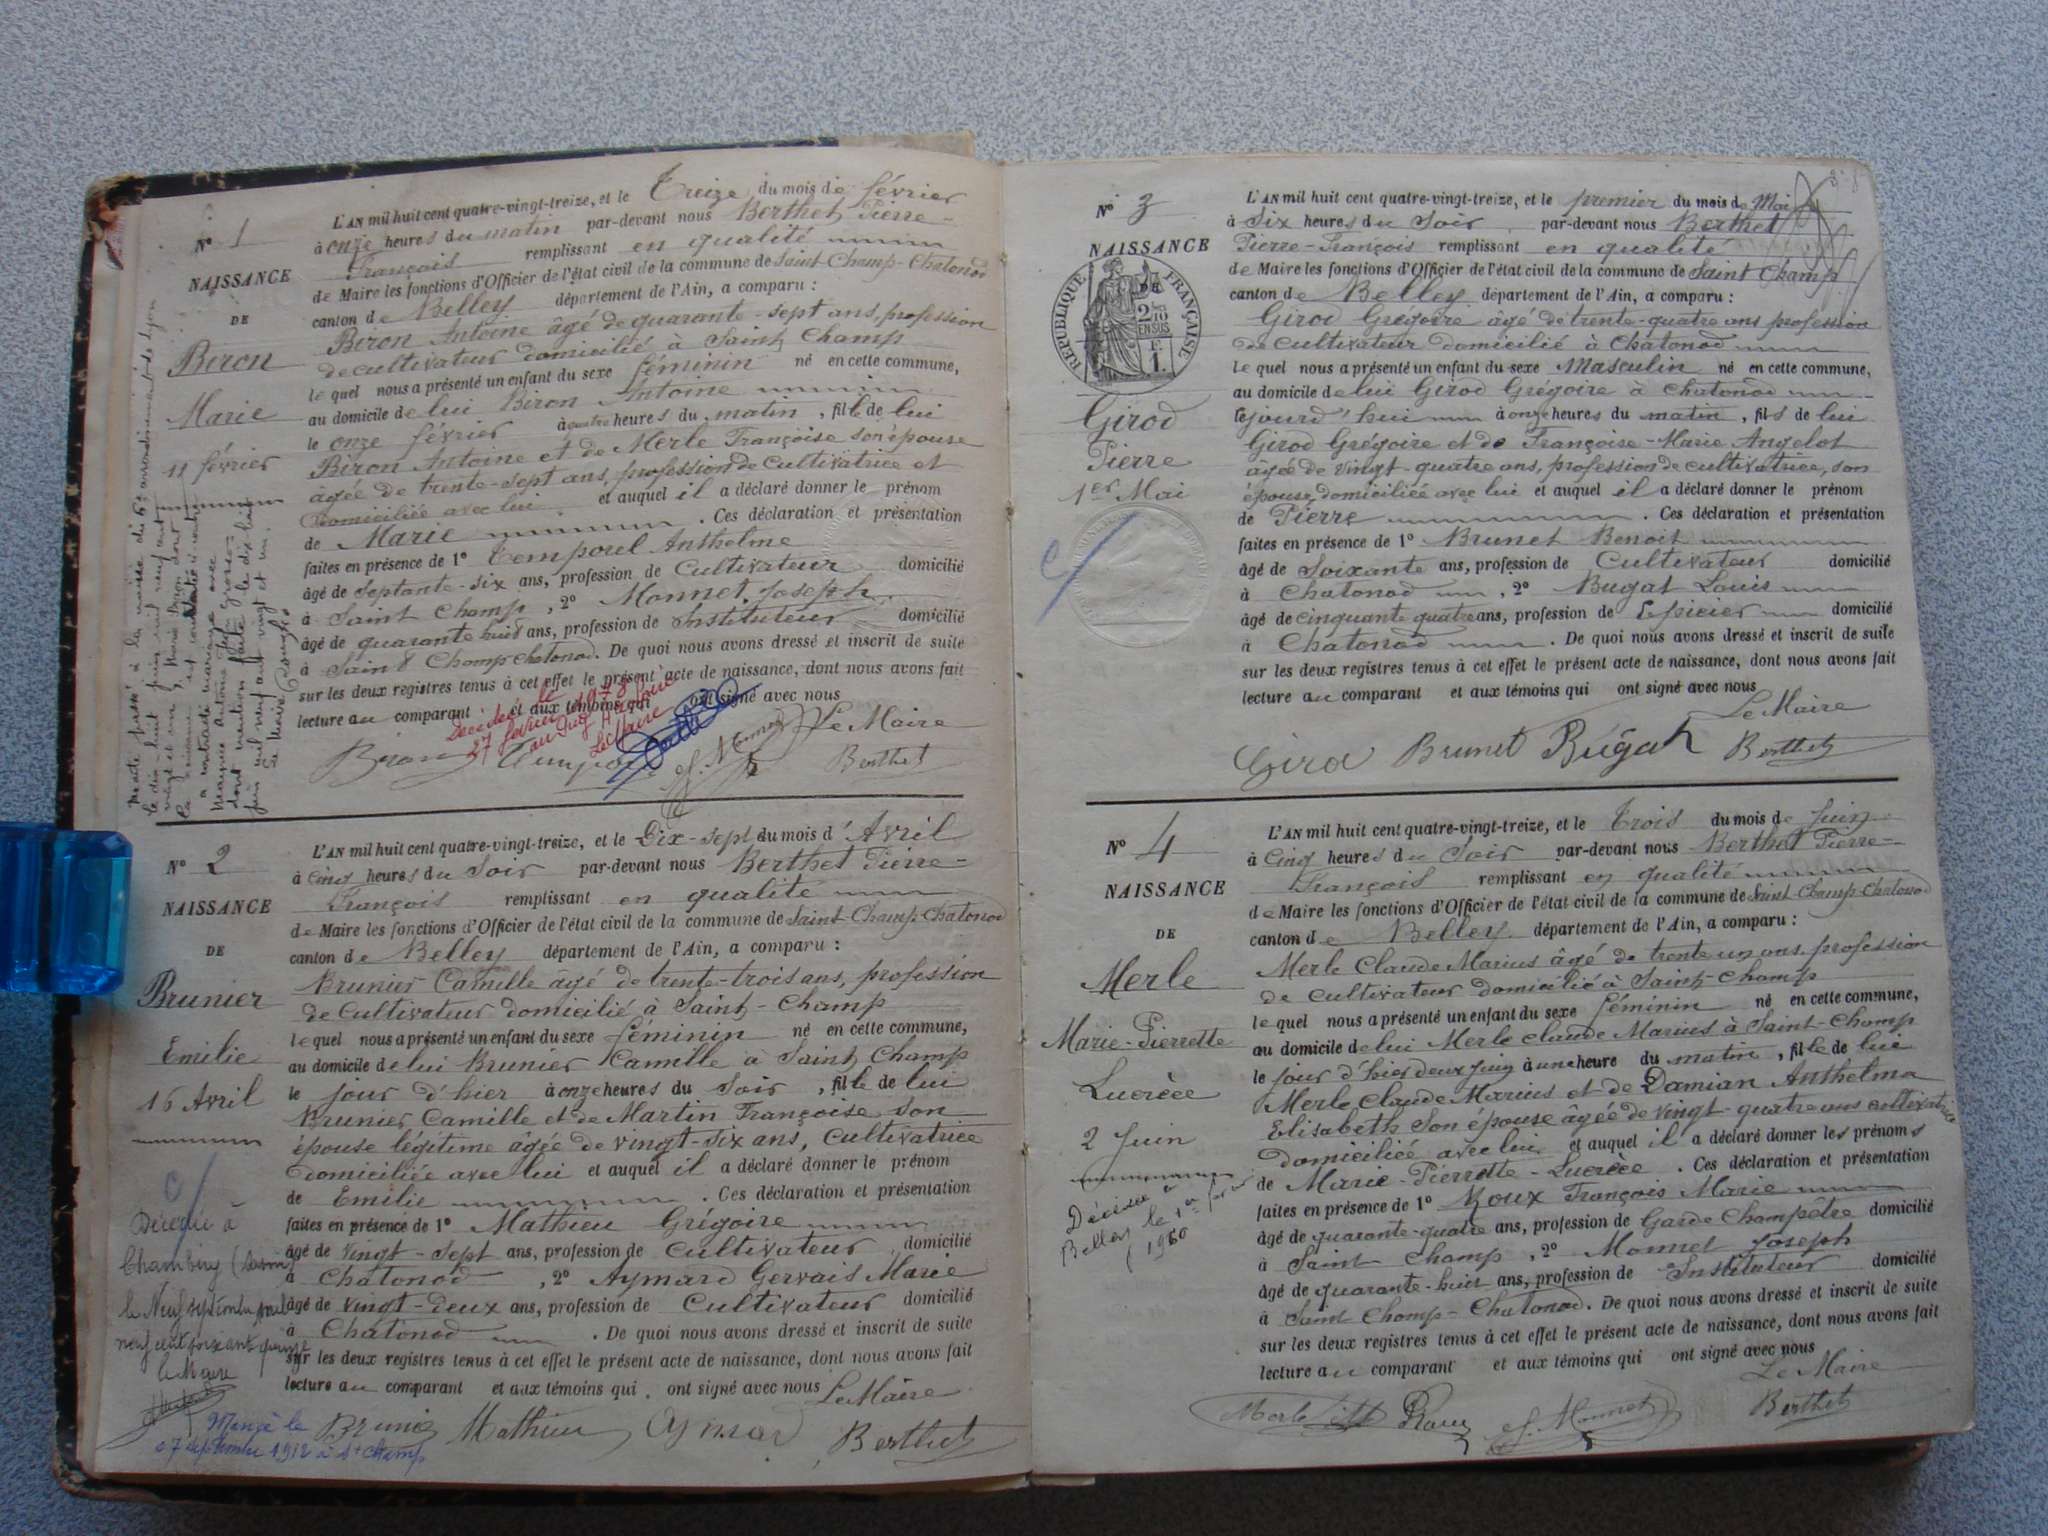 N° 1
NAISSANCE
DE
Biron
Marie
11 février
L'AN mil huit cent quatre-vingt-treize, et le Treize du mois de février
à onze heures du matin par-devant nous Berthet Pierre-
François remplissant en qualité
de Maire les fonctions d'Officier de l'état civil de la commune de Saint-Champ-Chatonod
canton de Belley département de l'Ain, a comparu :
Biron Antoine âgé de quarante-sept ans, profession
de cultivateur domicilié à Saint Champ
le quel nous a présenté un enfant du sexe féminin né en cette commune,
au domicile de lui Biron Antoine
le onze février à quatre heures du matin, fille de lui
Biron Antoine et de Merle Françoise son épouse
âgée de trente-sept ans, profession de cultivatrice et
domiciliée avec lui et auquel il a déclaré donner le prénom
de Marie . Ces déclaration et présentation
faites en présence de 1° Temporel Anthelme
âgé de septante-six ans, profession de Cultivateur domicilié
à Saint Champ, 2° Monnet Joseph
âgé de quarante huit ans, profession de Instituteur domicilié
à Saint Champ Chatonod. De quoi nous avons dressé et inscrit de suite
sur les deux registres tenus à cet effet le présent acte de naissance, dont nous avons fait
lecture au comparant et aux témoins qui ont signé avec nous
Décédée le
27 février 1978
Le Maire
Le Maire
Biron J. Monnet Berthet
N° 2
NAISSANCE
DE
Brunier
Emilie
16 Avril
L'AN mil huit cent quatre-vingt-treize, et le Dix-sept du mois d'Avril
à Cinq heures du Soir par-devant nous Berthet Pierre-
François remplissant en qualité
de Maire les fonctions d'Officier de l'état civil de la commune de Saint-Champ-Chatonod
canton de Belley département de l'Ain, a comparu :
Brunier Camille âgé de trente-trois ans, profession
de Cultivateur domicilié à Saint-Champ
le quel nous a présenté un enfant du sexe féminin né en cette commune,
au domicile de lui Brunier Camille à Saint Champ
le jour d'hier à onze heures du Soir, fille de lui
Brunier Camille et de Martin Françoise son
épouse légitime âgée de vingt-six ans, cultivatrice
domiciliée avec lui et auquel il a déclaré donner le prénom
de Emilie . Ces déclaration et présentation
faites en présence de 1° Mathieu Grégoire
âgé de vingt-sept ans, profession de Cultivateur domicilié
à Chatonod, 2° Aymard Gervais Marie
âgé de vingt-deux ans, profession de Cultivateur domicilié
à Chatonod . De quoi nous avons dressé et inscrit de suite
sur les deux registres tenus à cet effet le présent acte de naissance, dont nous avons fait
lecture au comparant et aux témoins qui ont signé avec nous Le Maire
Brunier Mathieu Aymard Berthet
Décédée à
Chambéry (Savoie)
le Neuf septembre mil
neuf cent soixante quinze
le Maire
Marié le
07 septembre 1912 à St Champ
N° 3
NAISSANCE
REPUBLIQUE FRANÇAISE
2/10
EN SUS
1 F.
Girod
Pierre
1er Mai
L'AN mil huit cent quatre-vingt-treize, et le premier du mois de Mai
à Six heures du Soir par-devant nous Berthet
Pierre-François remplissant en qualité
de Maire les fonctions d'Officier de l'état civil de la commune de Saint Champ
canton de Belley département de l'Ain, a comparu :
Girod Grégoire âgé de trente-quatre ans profession
de Cultivateur domicilié à Chatonod
le quel nous a présenté un enfant du sexe Masculin né en cette commune,
au domicile de lui Girod Grégoire à Chatonod
cejourd'hui à onze heures du matin, fils de lui
Girod Grégoire et de Françoise-Marie Angelot
âgée de vingt-quatre ans, profession de cultivatrice, son
épouse, domiciliée avec lui et auquel il a déclaré donner le prénom
de Pierre . Ces déclaration et présentation
faites en présence de 1° Brunet Benoit
âgé de Soixante ans, profession de Cultivateur domicilié
à Chatonod, 2° Bugat Louis
âgé de cinquante quatre ans, profession de Epicier domicilié
à Chatonod . De quoi nous avons dressé et inscrit de suite
sur les deux registres tenus à cet effet le présent acte de naissance, dont nous avons fait
lecture au comparant et aux témoins qui ont signé avec nous
Le Maire
Girod Brunet Bugat Berthet
N° 4
NAISSANCE
DE
Merle
Marie-Pierrette
Lucrèce
2 Juin
Décédée à
Belley le 1er février
1960
L'AN mil huit cent quatre-vingt-treize, et le Trois du mois de Juin
à Cinq heures du Soir par-devant nous Berthet Pierre-
François remplissant en qualité
de Maire les fonctions d'Officier de l'état civil de la commune de Saint-Champ-Chatonod
canton de Belley département de l'Ain, a comparu :
Merle Claude Marius âgé de trente un ans profession
de cultivateur domicilié à Saint-Champ
le quel nous a présenté un enfant du sexe féminin né en cette commune,
au domicile de lui Merle Claude Marius à Saint-Champ
le jour d'hier deux juin à une heure du matin, fille de lui
Merle Claude Marius et de Damian Anthelma
Elisabeth son épouse âgée de vingt-quatre ans cultivatrice
domiciliée avec lui et auquel il a déclaré donner les prénoms
de Marie-Pierrette-Lucrèce . Ces déclaration et présentation
faites en présence de 1° Roux François Marie
âgé de quarante-quatre ans, profession de Garde Champêtre domicilié
à Saint Champ, 2° Monnet Joseph
âgé de quarante-huit ans, profession de Instituteur domicilié
à Saint Champ-Chatonod. De quoi nous avons dressé et inscrit de suite
sur les deux registres tenus à cet effet le présent acte de naissance, dont nous avons fait
lecture au comparant et aux témoins qui ont signé avec nous
Le Maire
Merle Roux J. Monnet Berthet